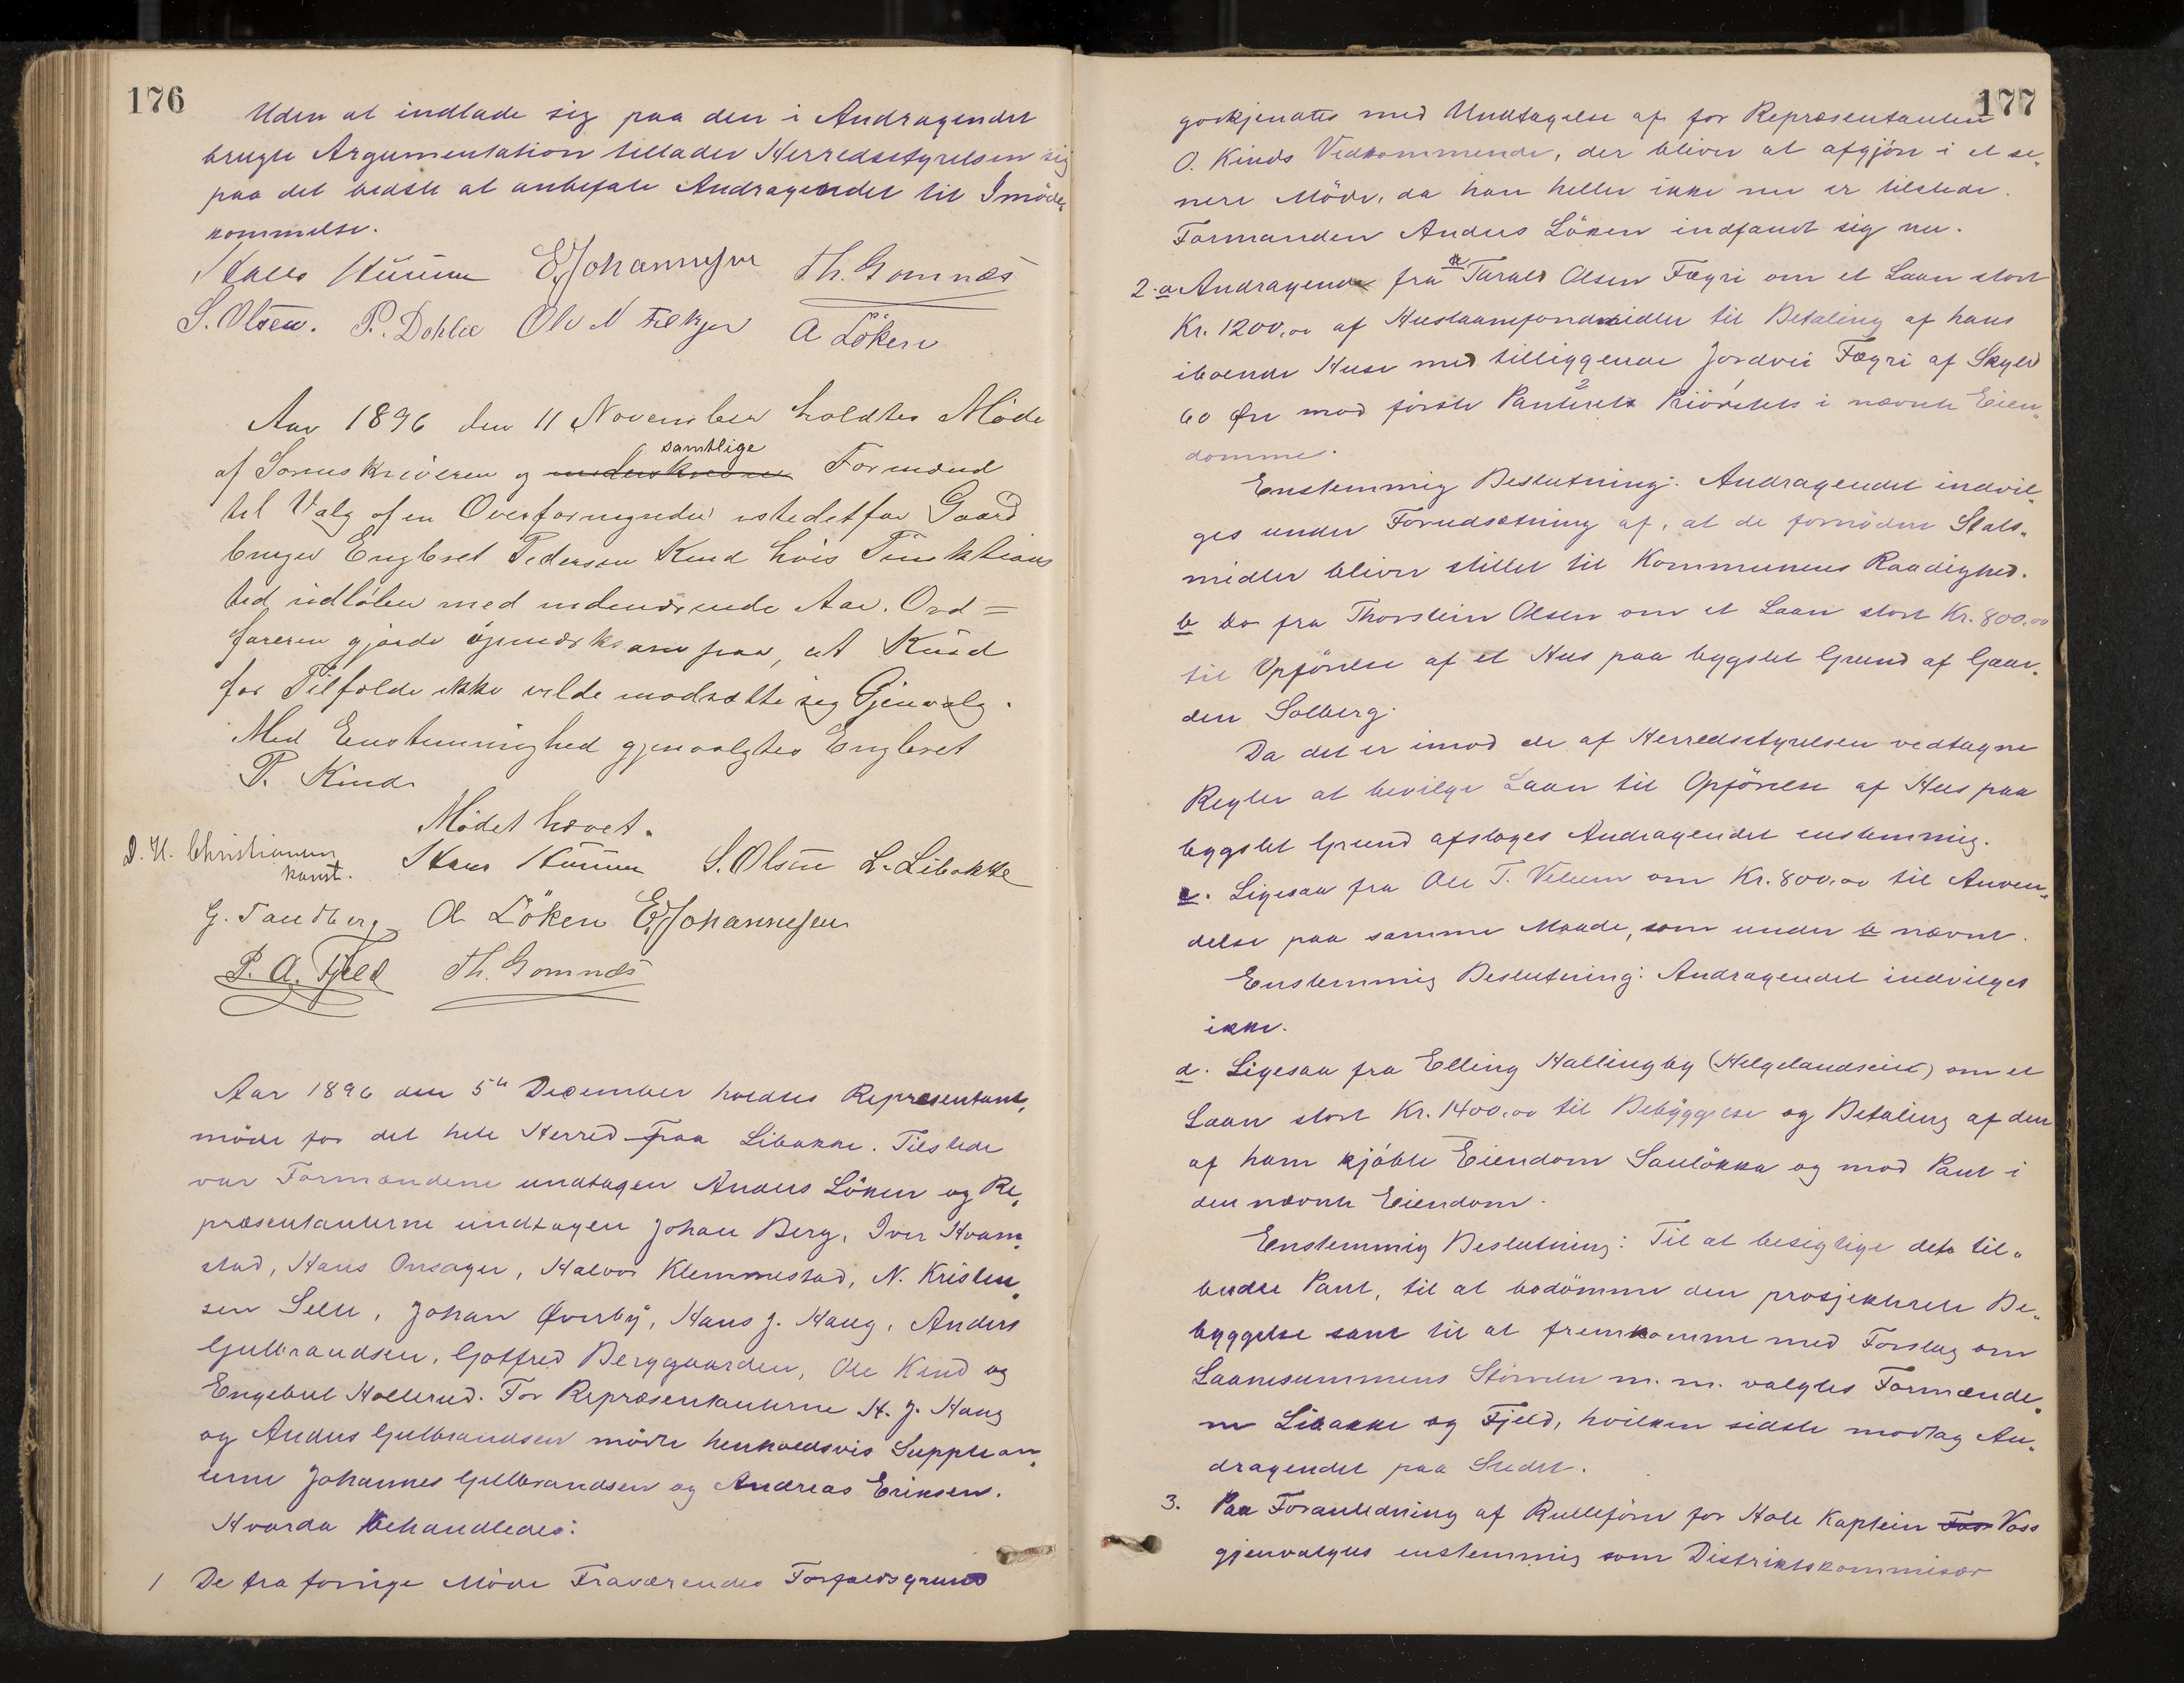 176
Uden at indlade sig paa den i Andragendet
brugte Argumentation tillader Herredsstyrelsen sig
paa det bedste at anbefale Andragendet til Imøde„
kommelse.
Hans E. Johannesen Th. Gomnæs
S. Olsen. P. Dehlie Ole A Løken
Aar 1896 den 11 November holdtes Møde
af Sorenskriveren og samtlige Formænd
til Valg af en Overformynder istedetfor Gaard
bruger Engebret Pedersen Kind hvis Funktions
tid udløber med indeværende Aar. Ord=
føreren gjorde opmærksom paa, at Kind
for Tilfælde ikke vilde modsætte sig Gjenvalg.
Med Enstemmighed gjenvalgtes Engebret
P. Kind.
Mødet hævet.
D. H. Christiansen
konst.
Hans S. Olsen L. Libakke
G. Sandberg A Løken E. Johannesen
P. A. Fjeld Th. Gomnæs
Aar 1896 den 5te December holdtes Repræsentant„
møde for det hele Herred paa Libakke. Tilstede
var Formændene undtagen Anders Løken og Re„
præsentanterne undtagen Johan Berg, Iver Hvam„
stad, Hans Onsager, Halvor Klemmestad, N. Kristen„
sen Selte, Johan Øverby, Hans J. Haug, Anders
Gulbrandsen, Gotfred Berggaarden, Ole Kind og
Engebret Hollerud. For Repræsentanterne H. J. Haug
og Anders Gulbrandsen mødte henholdsvis Supplean„
terne Johannes Gulbrandsen og Andreas Eriksen.
Hvorda behandledes:
1 De fra forrige Møde Fraværendes Forfaldsgrund
177
godkjendtes med Undtagelse af for Repræsentanten
O. Kinds Vedkommende, der bliver at afgjøre i et se„
nere Møde, da han heller ikke nu er tilstede.
Formanden Anders Løken indfandt sig nu.
2. a Andragende fra Tarald Olsen Fægri om et Laan stort
Kr. 1200,00 af Huslaanefondmidler til Betaling af hans
iboende Huse med tilliggende Jordvei Fægri af Skyld
60 Øre mod første Panterets Prioritets i nævnte Eien„
domme.
Enstemmig Beslutning: Andragendet indvil„
ges under Forudsætning af, at de fornødne Stats„
midler bliver stillet til Kommunens Raadighed.
b Do fra Thorstein Olsen om et Laan stort Kr. 800.00
til Opførelse af et Hus paa bygslet Grund af Gaar„
den Solberg.
Da det er imod de af Herredsstyrelsen vedtagne
Regler at bevilge Laan til Opførelse af Hus paa
bygslet Grund afsloges Andragendet enstemmig.
c. Ligesaa fra Ole T. Velum om Kr. 800,00 til Anven„
delse paa samme Maade, som under b nævnt.
Enstemmig Beslutning: Andragendet indvilges
ikke.
d. Ligesaa fra Elling Hallingby (Helgelandseie) om et
Laan stort Kr. 1400,00 til Bebyggelse og Betaling af den
af ham kjøbte Eiendom Sauløkka og mod Pant i
den nævnte Eiendom.
Enstemmig Beslutning: Til at besigtige det til„
budte Pant, til at bedømme den prosjekterede Be„
byggelse samt til at fremkomme med Forslag om
Laanesummens Størrelse m. m. valgtes Formænde„
ne Libakke og Fjeld, hvilken sidste modtog An„
dragendet paa Stedet.
3. Paa Foranledning af Rulleføreren for Hole Kaptein Voss
gjenvalgtes enstemmig som Distriktskommisær